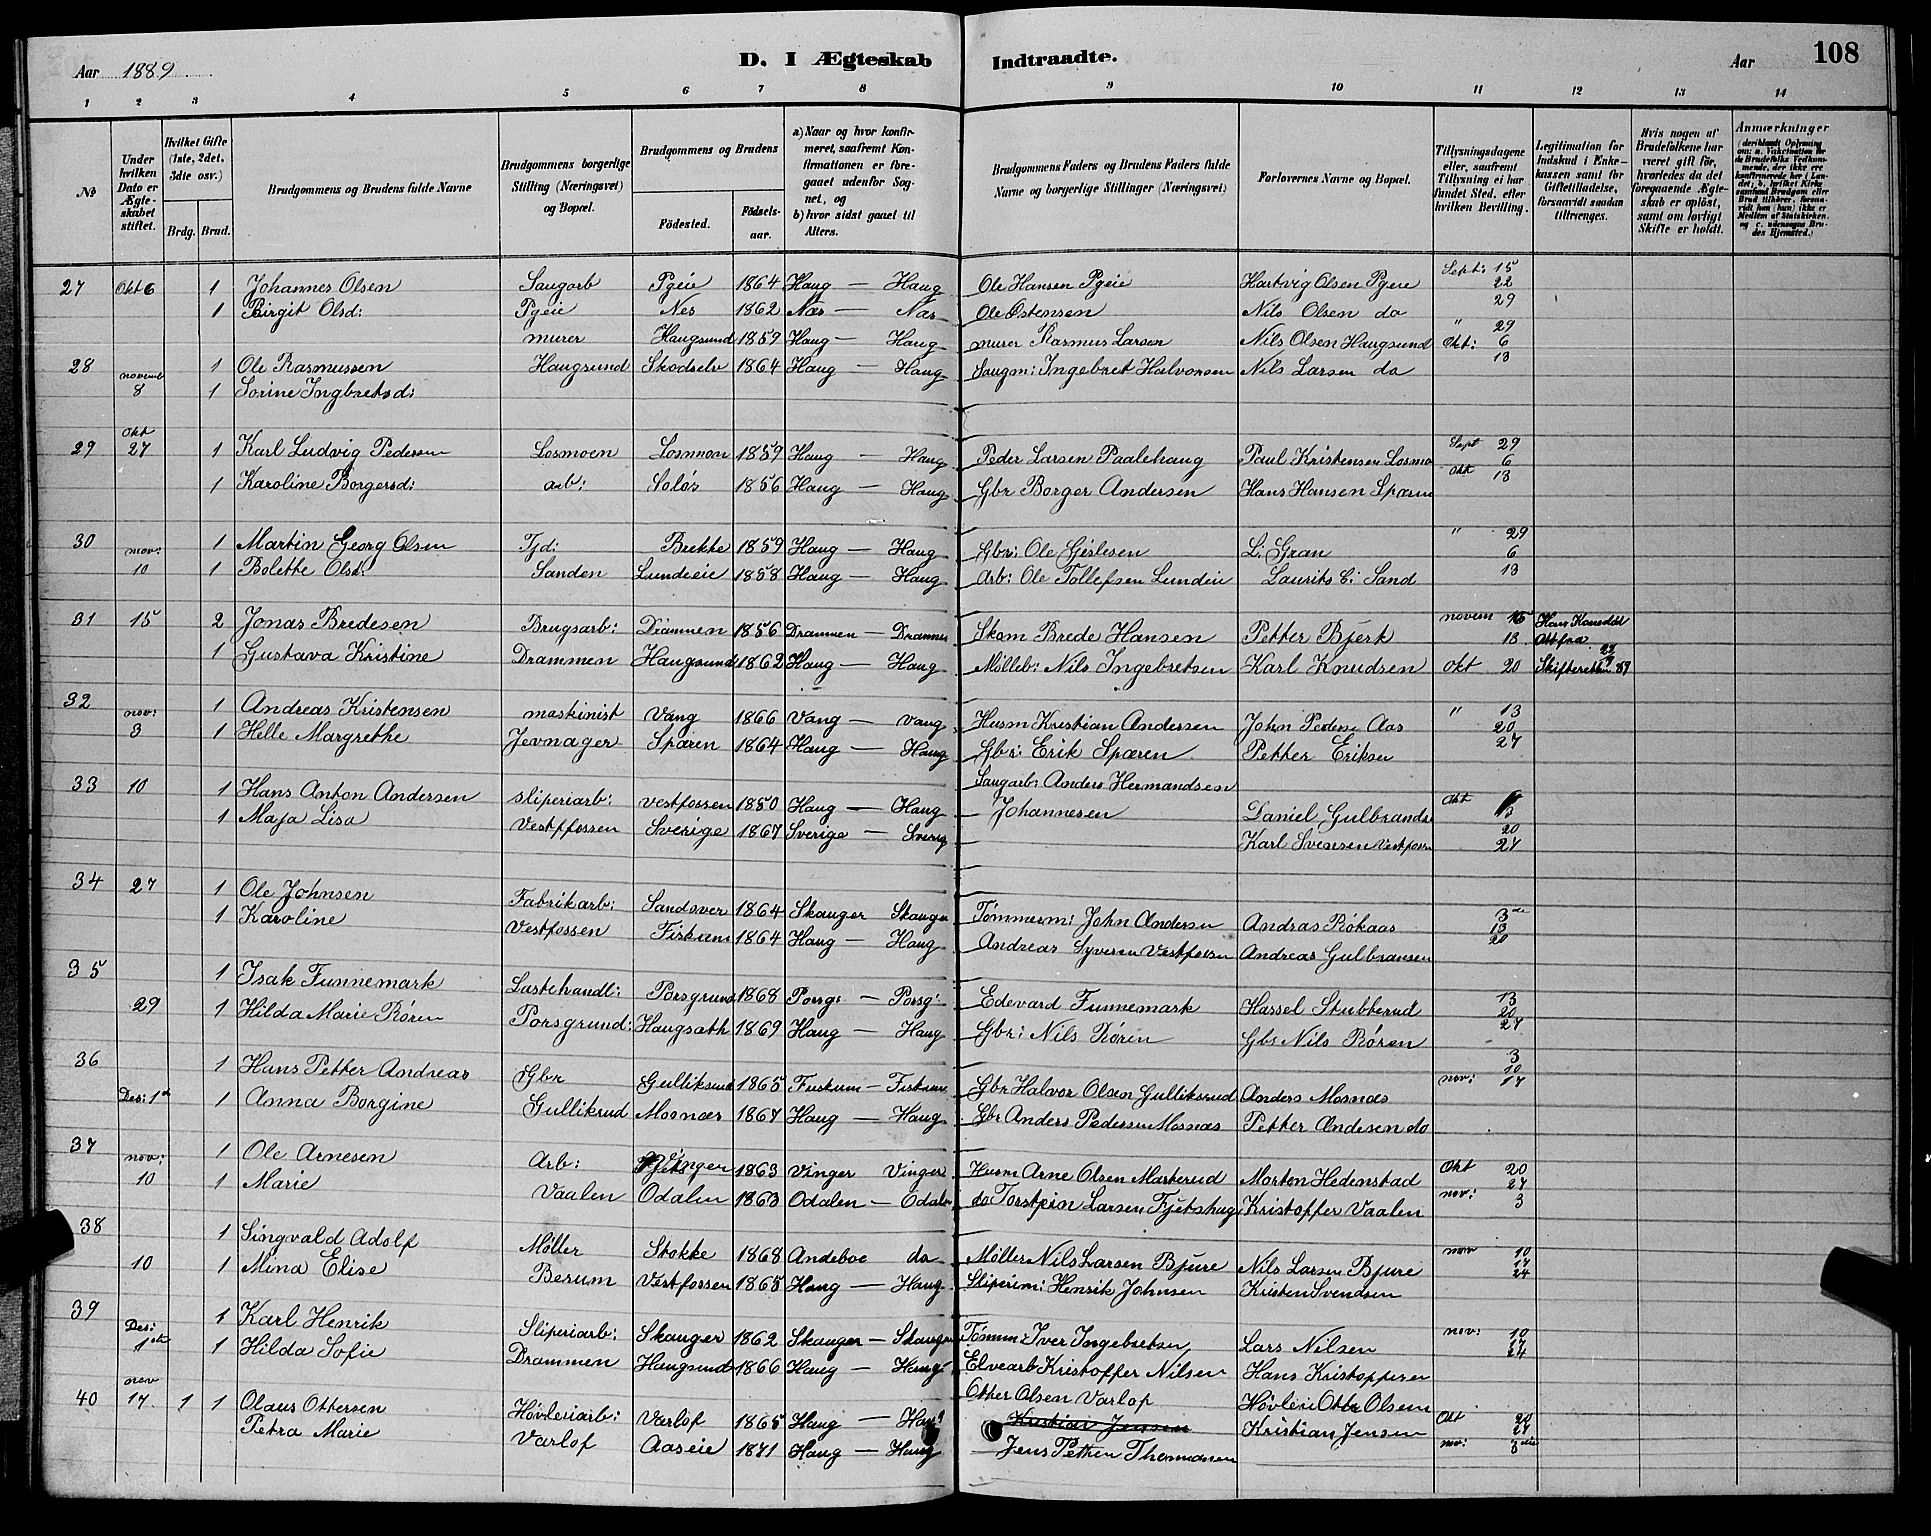 Aar 1889
D. I Ægteskab Indtraadte.
Aar
108
1 2 3 4 5 6 7 8 9 10 11 12 13 14
No
Under hvilken Dato er Ægteskabet stiftet.
Hvilket Gifte (1ste, 2det, 3die osv.)
Brdg. Brud.
Brudgommens og Brudens fulde Navne
Brudgommens borgerlige Stilling (Næringsvei) og Bopæl.
Brudgommens og Brudens
Fødested.
Fødselsaar.
a) Naar og hvor konfirmeret, saafremt Konfirmationen er foregaaet udenfor Sognet, og
b) hvor sidst gaaet til Alters.
Brudgommens Faders og Brudens Faders fulde Navne og borgerlige Stillinger (Næringsvei)
Forlovernes Navne og Bopæl.
Tillysningsdagene eller, saafremt Tillysning ei har fundet Sted, efter hvilken Bevilling.
Legitimation for Indskud i Enkekassen samt for Giftetilladelse, forsaavidt saadan tiltrænges.
Hvis nogen af Brudefolkene har været gift før, hvorledes da det foregaaende Ægteskab er opløst, samt om lovligt Skifte er holdt.
Anmærkninger
27 Okt 6 1 Johannes Olsen Saugarb Pgeie 1864 Haug — Haug Ole Hansen Pgeie Hartvig Olsen Pgeie Sept: 15 22
1 Birgit Olsd: Pgeie Nes 1862 Næs — Næs Ole Østensen Nils Olsen do 29
murer Haugsund 1859 Haug — Haug murer Rasmus Larsen Nils Olsen Haugsund " 29 Okt: 6
28 1 Ole Rasmussen Haugsund Skodselv 1864 Haug — Haug Saugm: Ingebret Halvorsen Nils Larsen do 13
novemb 8 1 Sorine Ingbretsd:
29 Okt 27 1 Karl Ludvig Pedersen Losmoen Losmoen 1859 Haug — Haug Peder Larsen Paalehaug Paul Kristensen Losmo Sept 29 6
1 Karoline Borgersd: arb: Soløs 1856 Haug — Haug Gbr Borger Andersen Hans Hansen Spæren Okt 13
30 nov: 1 Martin Georg Olsen Tjd: Brekke 1859 Haug — Haug Gbr: Ole Gislesen L: Gran " 29 6
10 1 Bolette Olsd: Sanden Lundeeie 1858 Haug — Haug Arb: Ole Tollefsen Lundeie Laurits E: Sand 13
31 15 2 Jonas Bredesen Brugsarb: Drammen 1856 Drammen — Drammen Skom Brede Hansen Petter Bjerk novem 15 13
1 Gustava Kristine Drammen Haugsund 1862 Haug — Haug Mølleb: Nils Ingebretsen Karl Knudsen Okt 20
32 nov: 1 Andreas Kristensen maskinist Vang 1866 Vang — vang Husm Kristian Andersen John Pedersen Aas " 13 20
3 1 Helle Margrethe Jevnager Spæren 1864 Haug — Haug Gbr: Erik Spæren Petter Eriksen 27
Saugarb: Anders Hermandsen
33 10 1 Hans Anton Andersen sliperiarb: vestfossen 1850 Haug — Haug Johannesen Daniel Gulbrands Okt 13
1 Maja Lisa Vestffossen Sverige 1867 Sverige — Sverig Karl Svensen Vestfossen 20 27
34 27 1 Ole Johnsen Fabrikarb: Sandsver 1864 Skauger Skauger Tømmerm: John Andersen Andras Røkaas 3 13
1 Karoline Vestfossen Fiskum 1864 Haug — Haug Andreas Syversen Vestfossen Andreas Gulbransen 20
35 1 Isak Funnemark Lastehandl: Porsgrund 1868 Porsg: — Porsg: Edevard Funnemark Hassel Stubberud 13 20
29 1 Hilda Marie Røren Porsgrund: Haugsath 1869 Haug — Haug Gbr: Nils Røren Gbs Nils Røren 27
36 1 Hans Petter Andreas Gbr Gulliksrud 1865 Fiskum — Fiskum Gbr Halvor Olsen Gulliksrud Anders Mosnæs 3 10 nov: 17
Des: 1ste 1 Anna Borgine Gulliksrud Mosnæs 1867 Haug — Haug Gbr Anders Pedersen Mosnæs Petter Andesen do
37 nov: 1 Ole Arnesen Arb: Vinger 1863 Vinger Vinger Husm Arne Olsen Marterud Morten Hedenstad Okt 20 27
10 1 Marie Vaalen Odalen 1863 Odalen — Odalen do Torstein Larsen Fjetshug Kristoffer Vaalen nov: 3
38 1 Singvald Adolf Møller Stokke 1868 Andeboe do Møller Nils Larsen Bjure Nils Larsen Bjure nov 10 17
10 1 Mina Elise Berum Vestfossen 1865 Haug — Haug Sliperim: Henrik Johnsen Kristen Svendsen 24
39 Des: 1 Karl Henrik Sliperiarb: Skauger 1862 Skauger — Skauger Tømm: Iver Ingebretsen Lars Nilsen nov: 10 17
1ste 1 Hilda Sofie Drammen Haugsund 1866 Haug — Haug Elvearb Kristoffer Nilsen Hans Kristoffersen 24
40 nov 17 1 1 Olaus Ottersen Høvleriarb: Varlof 1865 Haug — Haug Otter Olsen Varlof Høvleri Otter Olsen Okt 20
Petra Marie Varlof Aaseie 1871 Haug — Haug Kristian Jensen Kristian Jensen 27
Jens Petter Thormodsen nov: 3die